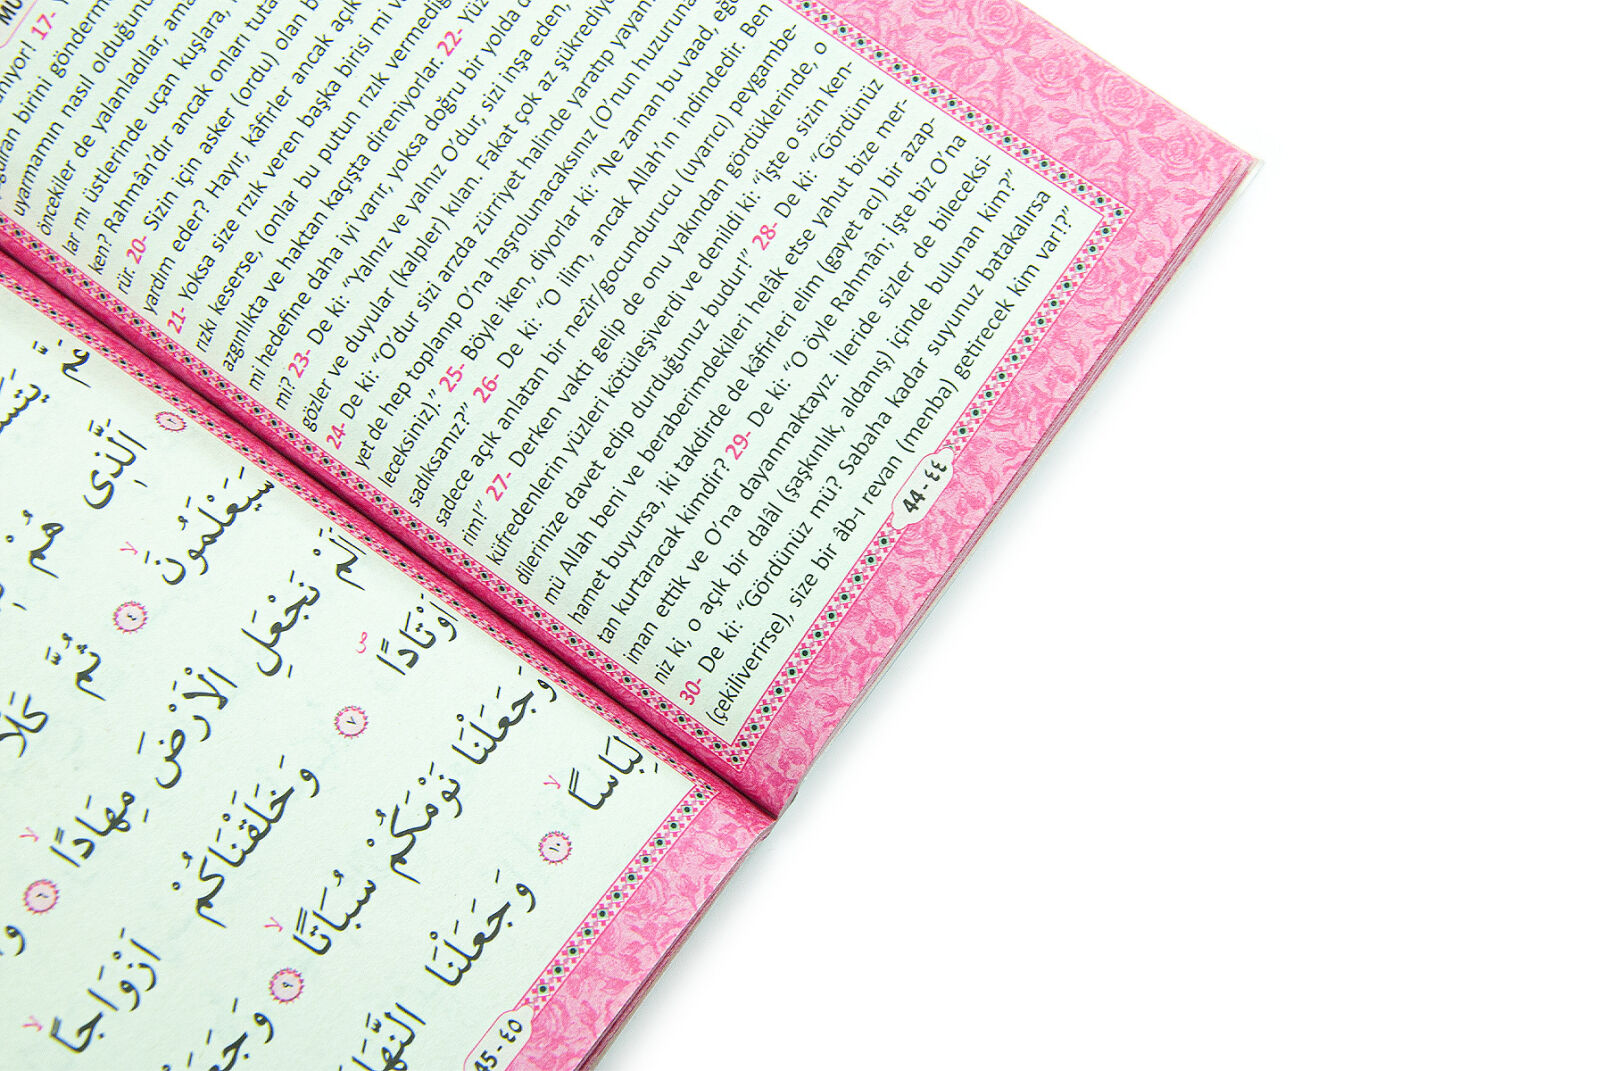 anıyor! 17-
birini gönderm
uyarmamın nasıl olduğunu
öncekiler de yalanladılar, ama
lar mı üstlerinde uçan kuşlara,
ken? Rahmân’dır ancak onları tuta
rür. 20- Sizin için asker (ordu) olan b
yardım eder? Hayır, kâfirler ancak açık
21- Yoksa size rızık veren başka birisi mi v
rızkı keserse, (onlar bu putun rızık vermediğ
azgınlıkta ve haktan kaçışta direniyorlar. 22- Yüz
mi hedefine daha iyi varır, yoksa doğru bir yolda d
mi? 23- De ki: “Yalnız ve yalnız O’dur, sizi inşa eden,
gözler ve duyular (kalpler) kılan. Fakat çok az şükrediyo
24- De ki: “O’dur sizi arzda zürriyet halinde yaratıp yayan
yet de hep toplanıp O’na haşrolunacaksınız (O’nun huzuruna
leceksiniz).” 25- Böyle iken, diyorlar ki: “Ne zaman bu vaad, eğe
sadıksanız?” 26- De ki: “O ilim, ancak Allah’ın indindedir. Ben
sadece açık anlatan bir nezîr/gocundurucu (uyarıcı) peygambe-
rim!” 27- Derken vakti gelip de onu yakından gördüklerinde, o
küfredenlerin yüzleri kötüleşiverdi ve denildi ki: “İşte o sizin ken-
dilerinize davet edip durduğunuz budur!” 28- De ki: “Gördünüz
mü Allah beni ve beraberimdekileri helâk etse yahut bize mer-
hamet buyursa, iki takdirde de kâfirleri elim (gayet acı) bir azap-
tan kurtaracak kimdir? 29- De ki: “O öyle Rahmân; İşte biz O’na
iman ettik ve O’na dayanmaktayız. İleride sizler de bileceksi-
niz ki, o açık bir dalâl (şaşkınlık, aldanış) içinde bulunan kim?”
30- De ki: “Gördünüz mü? Sabaha kadar suyunuz batakalırsa
(çekiliverirse), size bir âb-ı revan (menba) getirecek kim var!?”
44 - ٤٤
عَمَّ يَتَسَ
اَلَّذٖى هُمْ
سَيَعْلَمُونَ ٤ ثُمَّ كَلَّا
اَلَمْ نَجْعَلِ الْاَرْضَ مِهَادًا ٦
اَوْتَادًا ٧ وَخَلَقْنَاكُمْ اَزْوَاجًا
وَجَعَلْنَا نَوْمَكُمْ سُبَاتًا ٩ وَجَعَ
لِبَاسًا ١٠ وَجَعَلْنَا النَّهَا
45 - ٤٥